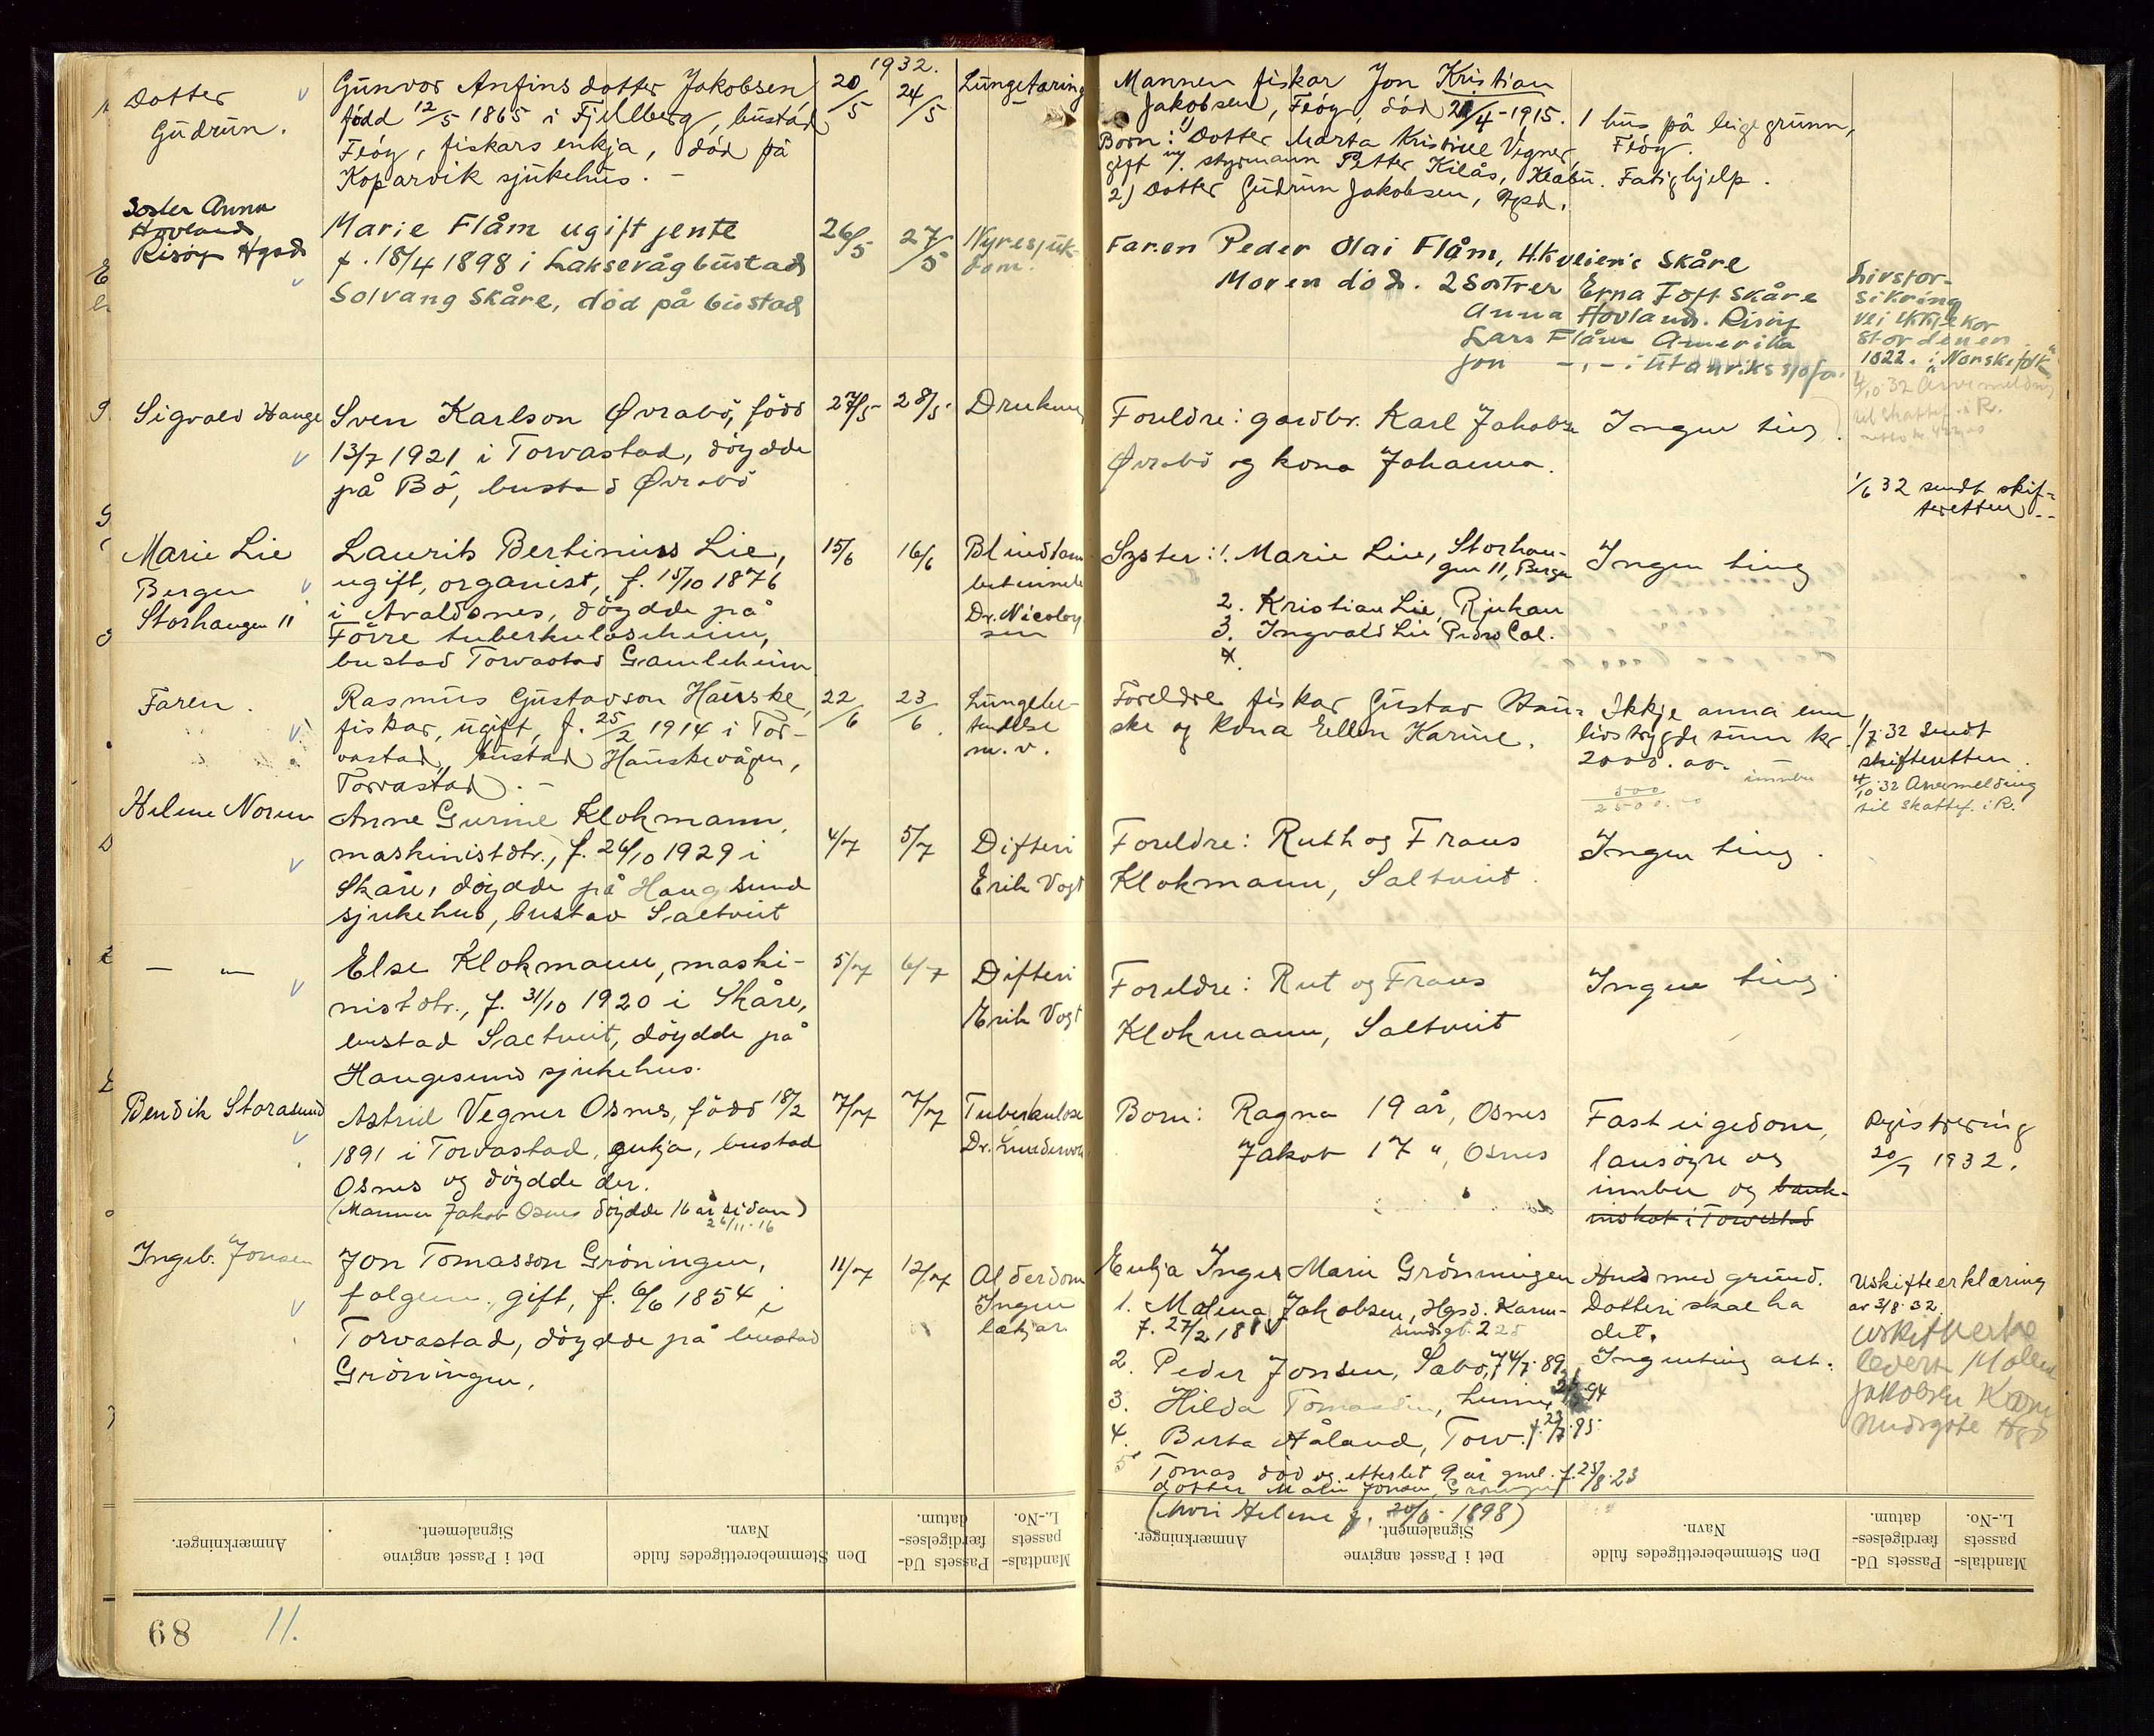 1932.
Dotter
Gudrun.
Gunvor Anfinsdotter Jakobsen
født 12/5 1865 i Fjellberg, bustad
Feøy, fiskars enkja, død på
Koparvik sjukehus. -
20/5
24/5
Lungetæring
Mannen fiskar Jon Kristian
Jakobsen, Feøy, død 21/4-1915.
Born: 1) Dotter Marta Kristine Vigner,
gift m/ styrmann Petter Kilås, Klæbu.
2) Dotter Gudrun Jakobsen, Hgsd.
1 hus på leigegrunn,
Feøy.
Fatighjelp.
Soster Anna
Hovland
Risøy Hgsd
Marie Flåm ugift jente
f. 18/4 1898 i Laksevåg bustad
Solvang Skåre, död på bustad
26/5
27/5
Nyresjuk-
dom.
Faren Peder Olai Flåm, H.kveien Skåre
Moren död. 2 Sostrer Erna Toft Skåre
Anna Hovland. Risöy
Lars Flåm Amerika
Jon -,- i utanrikssjøfa.
Livsfor-
sikring
1022. i "Norske folk"
4/10-32 Arvemelding
til skattef. i R.
Sigvald Hauge
Sven Karlson Øvrabö, född
13/7 1921 i Torvastad, döydde
på Bö, bustad Øvrabö
27/5
28/5
Drukning
Foreldre: gardbr. Karl Jakobsen
Øvrabö og kona Johanna.
Ingen ting.
1/6 32 sendt skif-
teretten --
Marie Lie
Bergen
Storhaugen 11
Laurits Bertinius Lie,
ugift, organist, f. 15/10 1876
i Avaldsnes, döydde på
Förre tuberkuloseheim,
bustad Torvastad Gamleheim
15/6
16/6
Blindtarm
betennelse
Dr. Nicolay
sen
Syster: 1. Marie Lie, Storhau-
gen 11, Bergen
2. Kristian Lie, Rjukan
3. Ingvald Lie Pedro Cal.
4.
Ingen ting
Faren.
Rasmus Gustavson Hauske,
fiskar, ugift, f. 25/2 1914 i Tor-
vastad, bustad Hauskevågen,
Torvastad. -
22/6
23/6
Lungebe-
tendelse
m. v.
Foreldre fiskar Gustav Hau-
ske og kona Ellen Karine.
Ikkje anna enn
livstrygdesum kr.
2000.00.
innbu
500
2500.00
1/7-32 sendt
skifteretten.
4/10-32 Arvemelding
til skattef. i R.
Helene Norum
Anne Gurine Klokmann,
maskinistdtr., f. 26/10 1929 i
Skåre, döydde på Haugesund
sjukehus, bustad Saltveit
4/7
5/7
Difteri
Erik Vogt
Foreldre: Ruth og Frans
Klokmann, Saltveit.
Ingen ting.
— " —
Else Klokmann, maski-
nistdtr., f. 31/10 1920 i Skåre,
bustad Saltveit, döydde på
Haugesund sjukehus.
5/7
6/7
Difteri
Erik Vogt
Foreldre: Rut og Frans
Klokmann, Saltveit
Ingen ting.
Bendik Storasund
Astrid Vegner Osnes, född 18/2
1891 i Torvastad, enkja, bustad
Osnes og döydde der.
(Mannen Jakob Osnes döydde 16 år sidan)
26/11-16
7/7
7/7
Tuberkulose
Dr. Lundervold
Born: Ragna 19 år, Osnes
Jakob 17 ", Osnes
Fast eigedom,
lausöyre og
innbu og bank-
innskot i Torvestad
Registrering
20/7 1932.
Ingeb. Jonsen
Jon Tomasson Gröningen,
folgem. gift, f. 6/6 1854 i
Torvastad, döydde på bustad
Gröningen.
11/7
12/7
Alderdom
Ingen
lækjar
Enkja Inger Marie Grönningen
1. Malena Jakobsen, Hgsd. Karm-
sundsgt. 225
2. Peder Jonsen, Sæbö, f 4/7.89
3. Hilda Tomassen,
4. Berta Åland, Torv. f. 23/7.95
5 Tomas död og etterlet 9 år gml. f. 25/8.23
dotter Malin Jonsen, Gröningen
(Mori Helene f. 20/6. 1898)
Hus med grund.
Dotteri skal ha
det.
Ingenting att.
Uskifteerklæring
av 3/8-32.
uskifteerkl
levert Malena
Jakobsen Karm
sundsgate Hgsd
Anmærkninger.
Det i Passet angivne
Signalement.
Den Stemmeberettigedes fulde
Navn.
Passets Ud-
færdigelses-
datum.
Mandtals-
passets
L.-No.
Anmærkninger.
Det i Passet angivne
Signalement.
Den Stemmeberettigedes fulde
Navn.
Passets Ud-
færdigelses-
datum.
Mandtals-
passets
L.-No.
68
11.